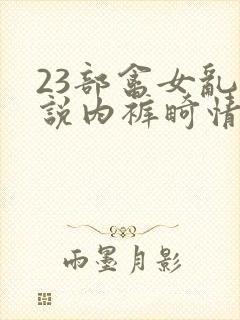 23部畜女亂
說内褲畸情
雨墨月影